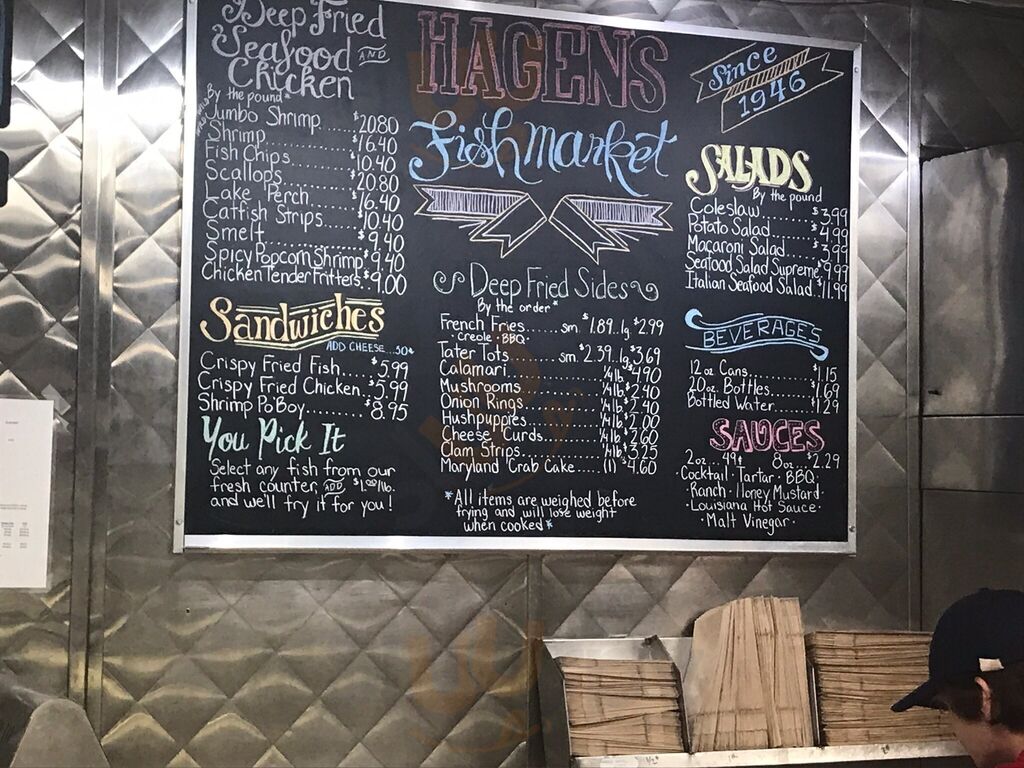 Deep Fried
Seafood AND
Chicken
By the pound*
Jumbo Shrimp.....$20.80
Shrimp..........$16.40
Fish Chips......$10.40
Scallops........$20.80
Lake Perch......$16.40
Catfish Strips....$10.40
Smelt...........$9.40
Spicy Popcorn Shrimp $9.40
Chicken Tender Fritters $9.00
Sandwiches
ADD CHEESE...50¢
Crispy Fried Fish....$5.99
Crispy Fried Chicken..$5.99
Shrimp Po Boy........$8.95
You Pick It
Select any fish from our
fresh counter, AND $1.00/lb.
and we'll fry it for you!
HAGENS
Fish market
Deep Fried Sides
By the order*
French Fries......sm. $1.89..lg. $2.99
· creole · BBQ ·
Tater Tots........sm. $2.39..lg. $3.69
Calamari..........1/4lb. $4.90
Mushrooms.........1/4lb. $2.40
Onion Rings.......1/4lb. $2.40
Hushpuppies.......1/4lb. $2.00
Cheese Curds......1/4lb. $2.60
Clam Strips.......1/4lb. $3.25
Maryland Crab Cake....(1) $4.60
*All items are weighed before
frying and will lose weight
when cooked*
Since
1946
SALADS
By the pound
Coleslaw..........$3.99
Potato Salad......$4.99
Macaroni Salad....$3.99
Seafood Salad Supreme $9.99
Italian Seafood Salad..$11.99
BEVERAGES
12 oz Cans.........$1.15
20 oz. Bottles.....$1.69
Bottled Water......$1.29
SAUCES
2 oz... 49¢ 8 oz... $2.29
·Cocktail · Tartar · BBQ·
·Ranch · Honey Mustard·
·Louisiana Hot Sauce·
·Malt Vinegar·